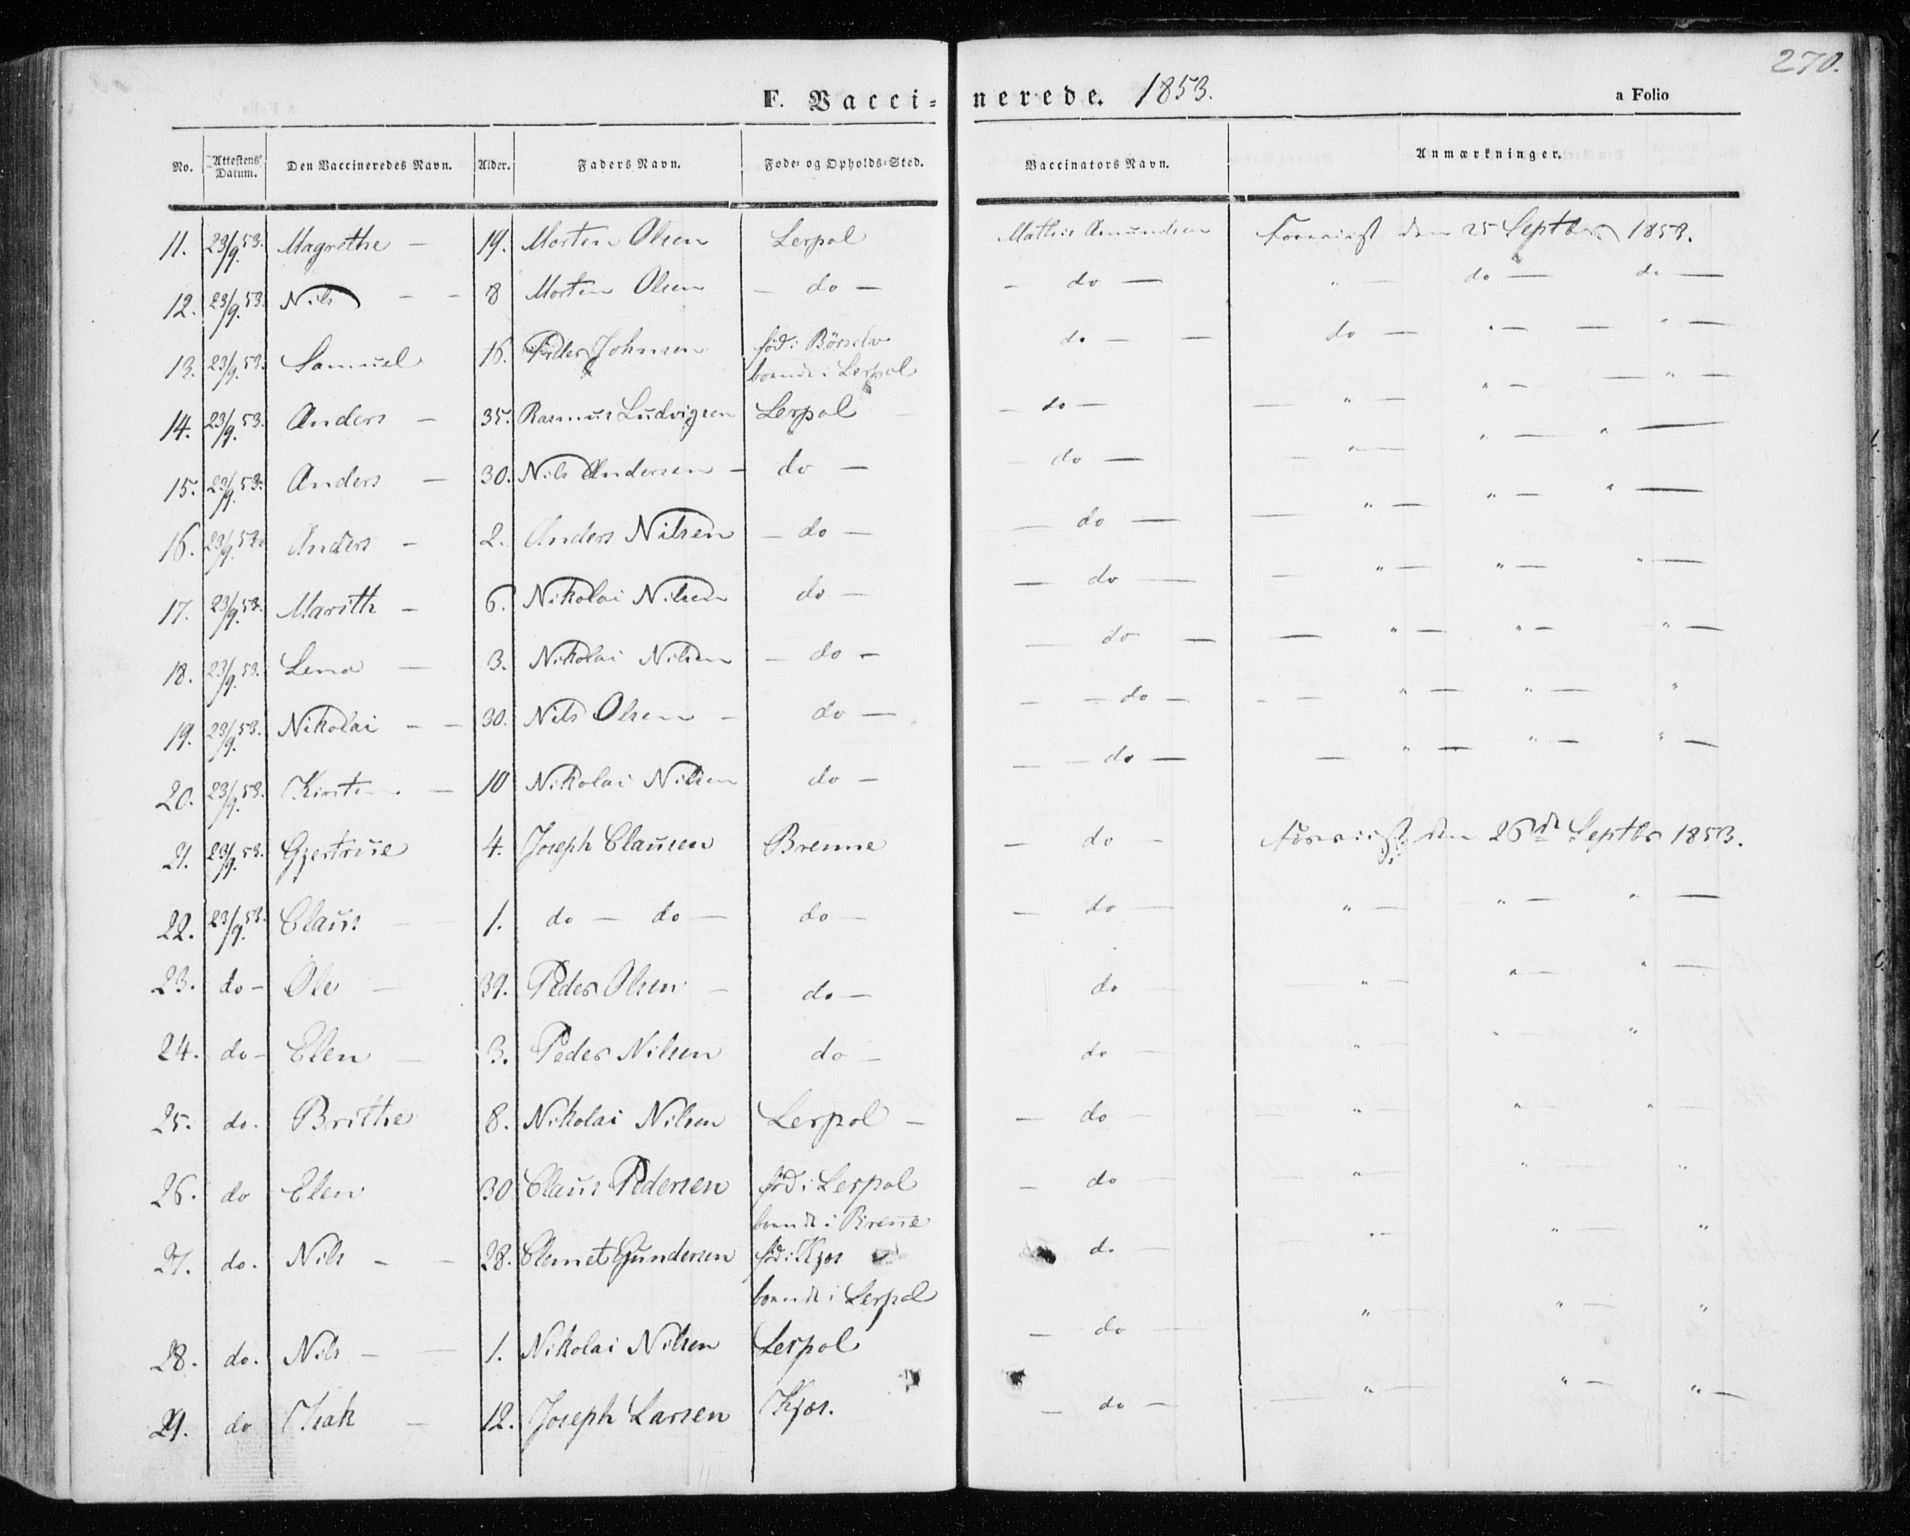 270.
F. Vacci- nerede. 1853. a Folio
No. Attestens Datum. Den Vaccineredes Navn. Alder. Faders Navn. Føde- og Opholds-Sted. Vaccinators Navn. Anmærkninger.
11. 23/9. 53. Magrethe — 19. Morten Olsen Lerpol Mathis Amundsen den 25 Septbr 1853.
12. 23/9. 53. Nils — — 8 Morten Olsen — do — — do — " — do — do —
13. 23/9. 53. Samuel 16. Peder Johnsen fød i Börselv do — — do — " — — " —
boende i Lerpol
14. 23/9. 53. Anders — 35. Rasmus Ludvigsen Lerpol — — do — — " — " — — " —
15. 23/9. 53. Anders — 30. Nils Andersen — do — — do — " — " — " —
16. 23/9. 53. Anders — 2. Anders Nilsen — do — — do — — " — " — " —
17. 23/9. 53. Marith — 6. Nikolai Nilsen do — — do — — " — " — " —
18. 23/9. 53. Lena — 3. Nikolai Nilsen — do — — do — — " — " — " —
19. 23/9. 53. Nikolai — — 30. Nils Olsen — do — — — do — — — " — " — "
20. 23/9. 53. Kirsten — 10 Nikolai Nilsen do — — — do — — " — " — " —
21. 23/9. 53. Gjertrue 4. Joseph Clausen Brenne — do — den 26de Septbr 1853.
22. 23/9. 53. Claus — 1. do — do — do — — do — " — " — " —
23. do — Ole — 39. Peder Olsen — do — do — " — " — " —
24. do — Elen — 3. Peder Nilsen do — do — " — " — "
25. do. Brithe 8. Nikolai Nilsen Lerpol — — do — " — " — " —
26. do Elen 30 Claus Pedersen fød i Lerpol — do — " — " — "
boende i Brenne
27. do. Nils — — 28. Clemet Gundersen fød i Kjæs do — " — " — "
boende i Lerpol
28. do. Nils — — 1. Nikolai Nilsen Lerpol — do — " — " — "
29. do Isak — 12. Joseph Larsen Kjæs. — do — — " — " — " —